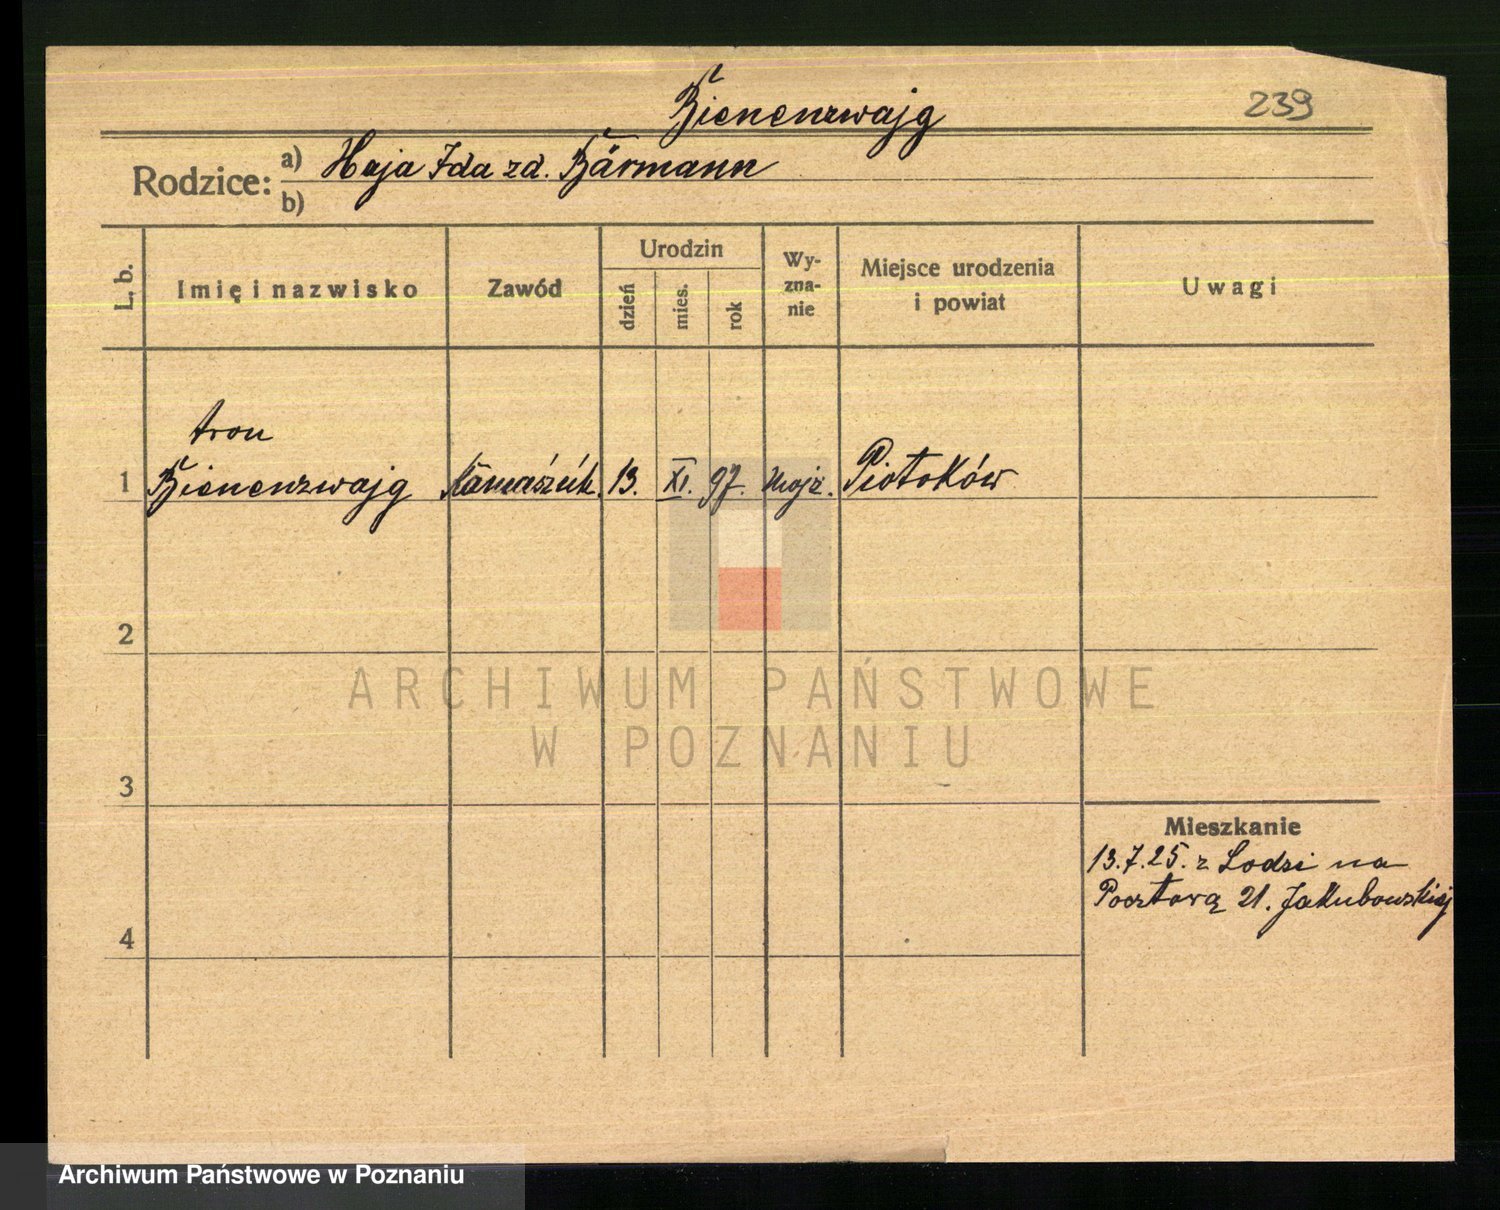 Bienenzwajg
239
Rodzice:
a) Haja Ida zd. Bärmann
b)
L. b.
Imię i nazwisko
Zawód
Urodzin
dzień
mies.
rok
Wy-
zna-
nie
Miejsce urodzenia
i powiat
Uwagi
Aron
1 Bienenzwajg 13. XI. 97. mojż. Piotrków
2
3
4
Mieszkanie
13.7.25. z Lodzi na
Pocztową 21. Jakubowskiej
ARCHIWUM PAŃSTWOWE
W POZNANIU
Archiwum Państwowe w Poznaniu